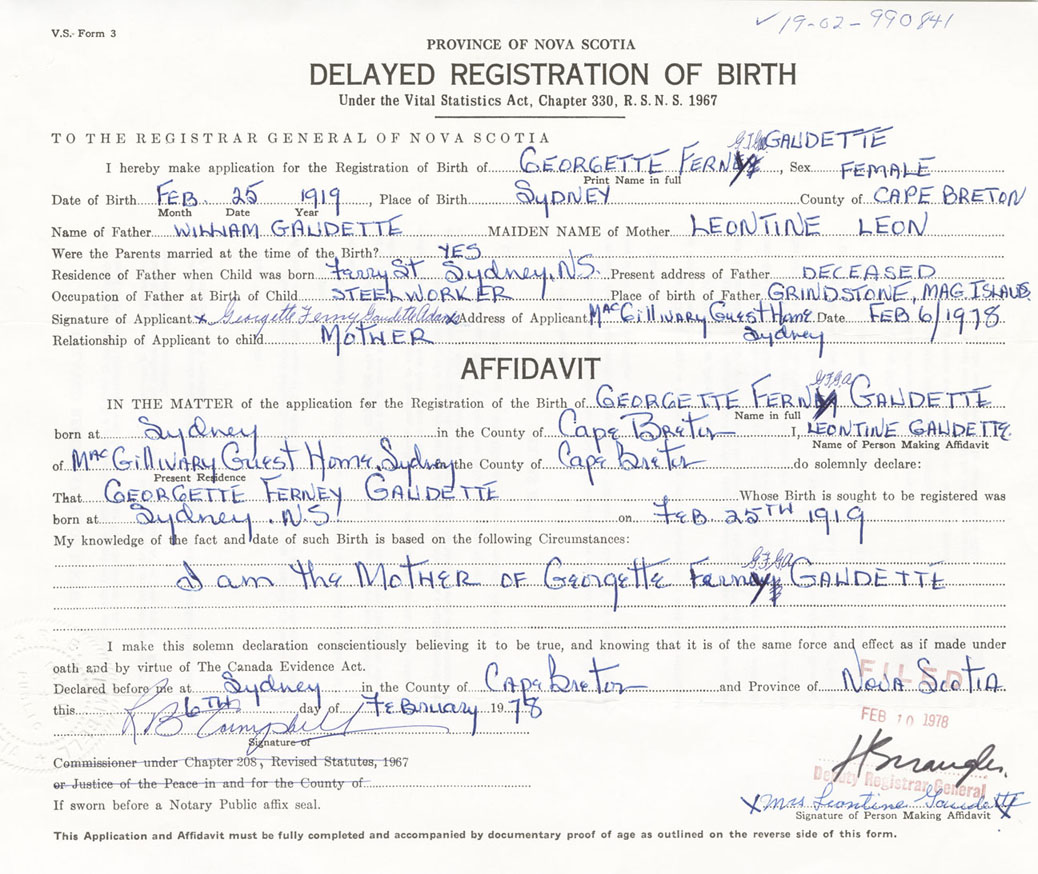 V.S. Form 3
✓ 19-02-990841
PROVINCE OF NOVA SCOTIA
DELAYED REGISTRATION OF BIRTH
Under the Vital Statistics Act, Chapter 330, R. S. N. S. 1967
TO THE REGISTRAR GENERAL OF NOVA SCOTIA
I hereby make application for the Registration of Birth of GEORGETTE FERNY GAUDETTE, Sex FEMALE
Print Name in full
Date of Birth FEB. 25 1919, Place of Birth SYDNEY County of CAPE BRETON
Month Date Year
Name of Father WILLIAM GAUDETTE MAIDEN NAME of Mother LEONTINE LEON
Were the Parents married at the time of the Birth? YES
Residence of Father when Child was born Ferry St Sydney, N.S. Present address of Father DECEASED
Occupation of Father at Birth of Child STEELWORKER Place of birth of Father GRINDSTONE, MAG ISLANDS
Signature of Applicant x Georgette Ferny Gaudette Adams Address of Applicant MacGillivary Guest Home Date FEB 6/1978
Sydney
Relationship of Applicant to child MOTHER
AFFIDAVIT
G.F.G.A.
IN THE MATTER of the application for the Registration of the Birth of GEORGETTE FERNY GAUDETTE
Name in full
born at Sydney in the County of Cape Breton I, LEONTINE GAUDETTE
Name of Person Making Affidavit
of MacGillivary Guest Home, Sydney the County of Cape Breton do solemnly declare:
Present Residence
That GEORGETTE FERNEY GAUDETTE Whose Birth is sought to be registered was
born at Sydney, N.S. on FEB 25TH 1919
My knowledge of the fact and date of such Birth is based on the following Circumstances:
G.F.G.A.
I am the MOTHER OF Georgette Ferny GAUDETTE
I make this solemn declaration conscientiously believing it to be true, and knowing that it is of the same force and effect as if made under
oath and by virtue of The Canada Evidence Act.
Declared before me at Sydney in the County of Cape Breton and Province of NOVA SCOTIA
FILED
this 6TH day of February 1978
FEB 10 1978
R B Campbell
Signature of
Commissioner under Chapter 208, Revised Statutes, 1967
or Justice of the Peace in and for the County of
Deputy Registrar General
If sworn before a Notary Public affix seal.
x Mrs Leontine Gaudette x
Signature of Person Making Affidavit
This Application and Affidavit must be fully completed and accompanied by documentary proof of age as outlined on the reverse side of this form.